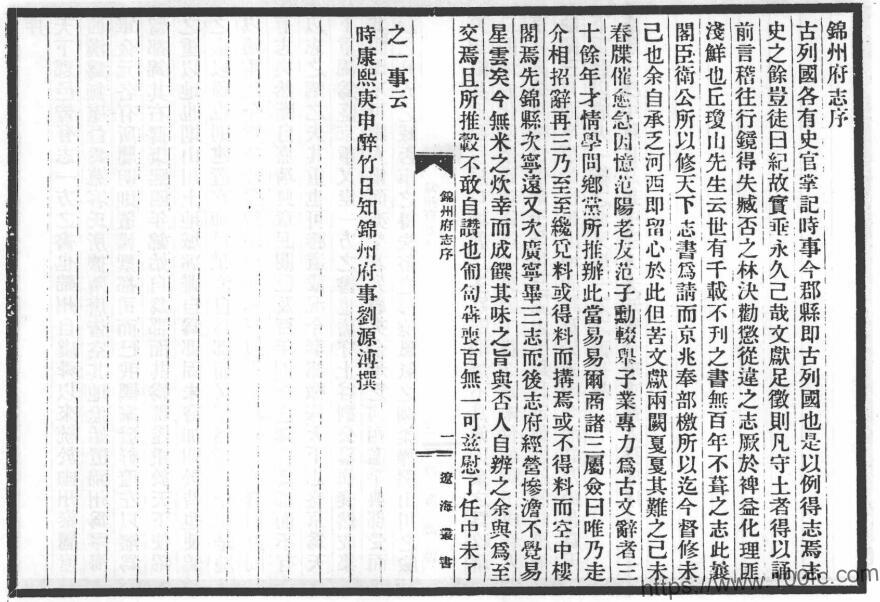 錦州府志序
古列國各有史官掌記時事今郡縣即古列國也是以例得志焉志
史之餘豈徒曰紀故實垂永久已哉文獻足徵則凡守土者得以誦
前言稽往行鏡得失臧否之林決勸懲從違之志厥於裨益化理匪
淺鮮也丘瓊山先生云世有千載不刊之書無百年不葺之志此曩
閣臣衛公所以修天下志書為請而京兆奉部檄所以迄今督修未
已也余自承乏河西即留心於此但苦文獻兩闕戛戛其難之己未
春牒催愈急因憶范陽老友范子勳輟舉子業專力為古文辭者三
十餘年才情學問鄉黨所推辦此當易易爾商諸三屬僉曰唯乃走
介相招辭再三乃至至纔覓料或得料而搆焉或不得料而空中樓
閣焉先錦縣次寧遠又次廣寧畢三志而後志府經營慘澹不覺易
星雲矣今無米之炊幸而成饌其味之旨與否人自辨之余與為至
交焉且所推轂不敢自讚也匍匐犇喪百無一可茲慰了任中未了
錦州府志序
一
遼海叢書
之一事云
時康熙庚申醉竹日知錦州府事劉源溥撰
https://www.100fc.com